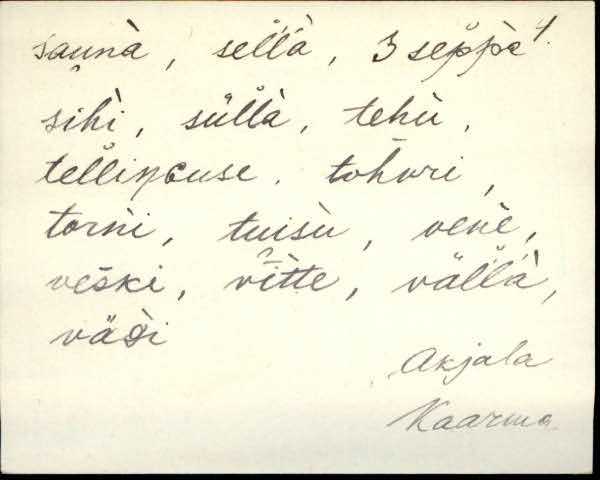 saunà, sellà, 3 seppè 4.
sihì, süllà, tehù,
tellincuse, tohvri,
torni, tuisù, venè,
veski, vitte, vällà,
väsi
Akjala
Kaarma